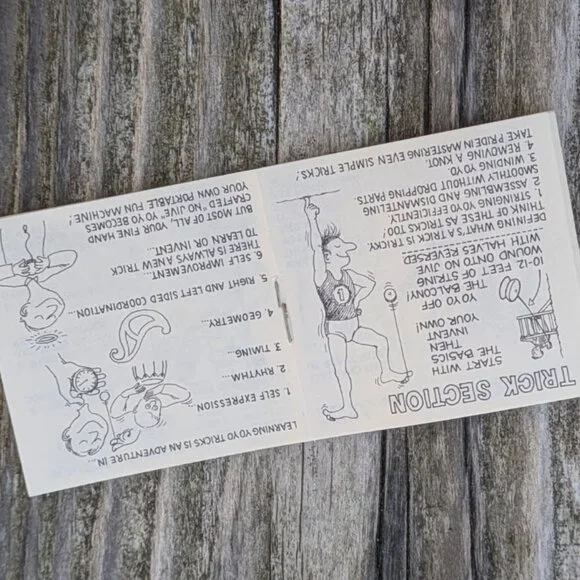 TRICK SECTION
START WITH
THE BASICS
THEN
INVENT
YOUR OWN!
YO YO OFF
THE BALCONY!
10-12 FEET OF STRING
WOUND ONTO NO JIVE
WITH HALVES REVERSED
1
DEFINING WHAT'S A TRICK IS TRICKY.
THINK OF THESE AS TRICKS TOO:
1. STRINGING YOYO EFFICIENTLY.
2. ASSEMBLING AND DISMANTELING
SMOOTHLY WITHOUT DROPPING PARTS
3. WINDING YOYO.
4. REMOVING A KNOT.
TAKE PRIDE IN MASTERING EVEN SIMPLE TRICKS!
LEARNING YOYO TRICKS IS AN ADVENTURE IN...
1. SELF EXPRESSION
2. RHYTHM...
3. TIMING...
4. GEOMETRY...
5. RIGHT AND LEFT SIDED COORDINATION...
6. SELF IMPROVEMENT...
THERE IS ALWAYS A NEW TRICK
TO LEARN OR INVENT...
BUT MOST OF ALL, YOUR FINE HAND
CRAFTED "NO JIVE" YO YO BECOMES
YOUR OWN PORTABLE FUN MACHINE!